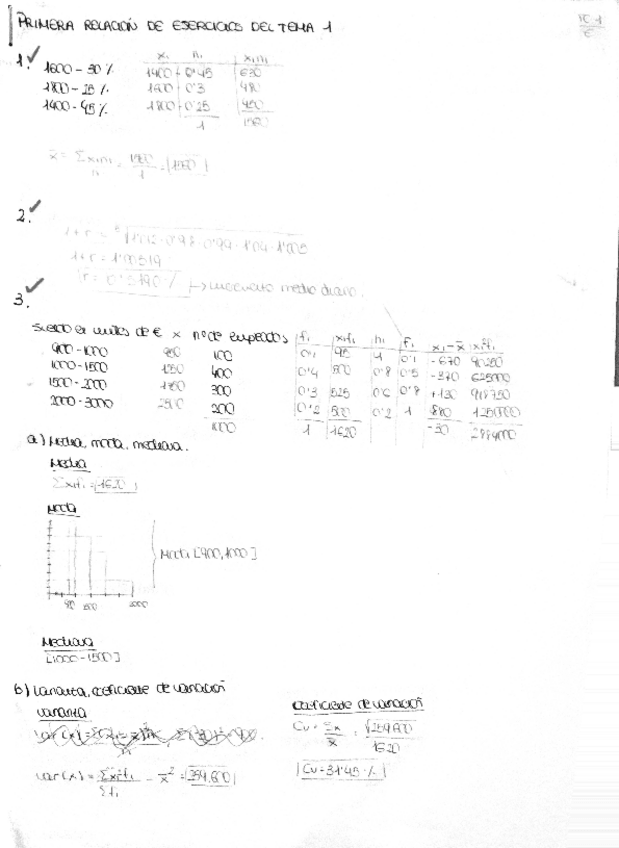 PRIMERA RELACIÓN DE EJERCICIOS DEL TEMA 1
1.
1600 - 30 %
1800 - 25 %
1400 - 45 %
xi ni xini
1400 0'45 630
1600 0'3 480
1800 0'25 450
1 1560
x̄ = Σxini / n = 1560 / 1 = 1560
2.
1+r = 1'00519
r = 0'5190 % → incremento medio diario.
3.
Sueldo en miles de € x nº de empleados fi xifi hi Fi xi - x̄ xi²fi
900 - 1000 950 100 0'1 95 1 0'1 -670 90250
1000 - 1500 1250 400 0'4 500 0'8 0'5 -370 625000
1500 - 2000 1750 300 0'3 525 0'6 0'8 +130 918750
2000 - 3000 2500 200 0'2 500 0'2 1 880 1250000
1000 1 1620 -30 2884000
a) Media, moda, mediana.
Media
Σxifi = 1620
Moda
Moda [900, 1000]
Mediana
[1000 - 1500]
b) Varianza, coeficiente de variación
Varianza
Var (x) = Σxi²fi / Σfi - x̄² = 259.600
Coeficiente de variación
Cv = / x̄ = √259.600 / 1620
Cv = 31'45 %